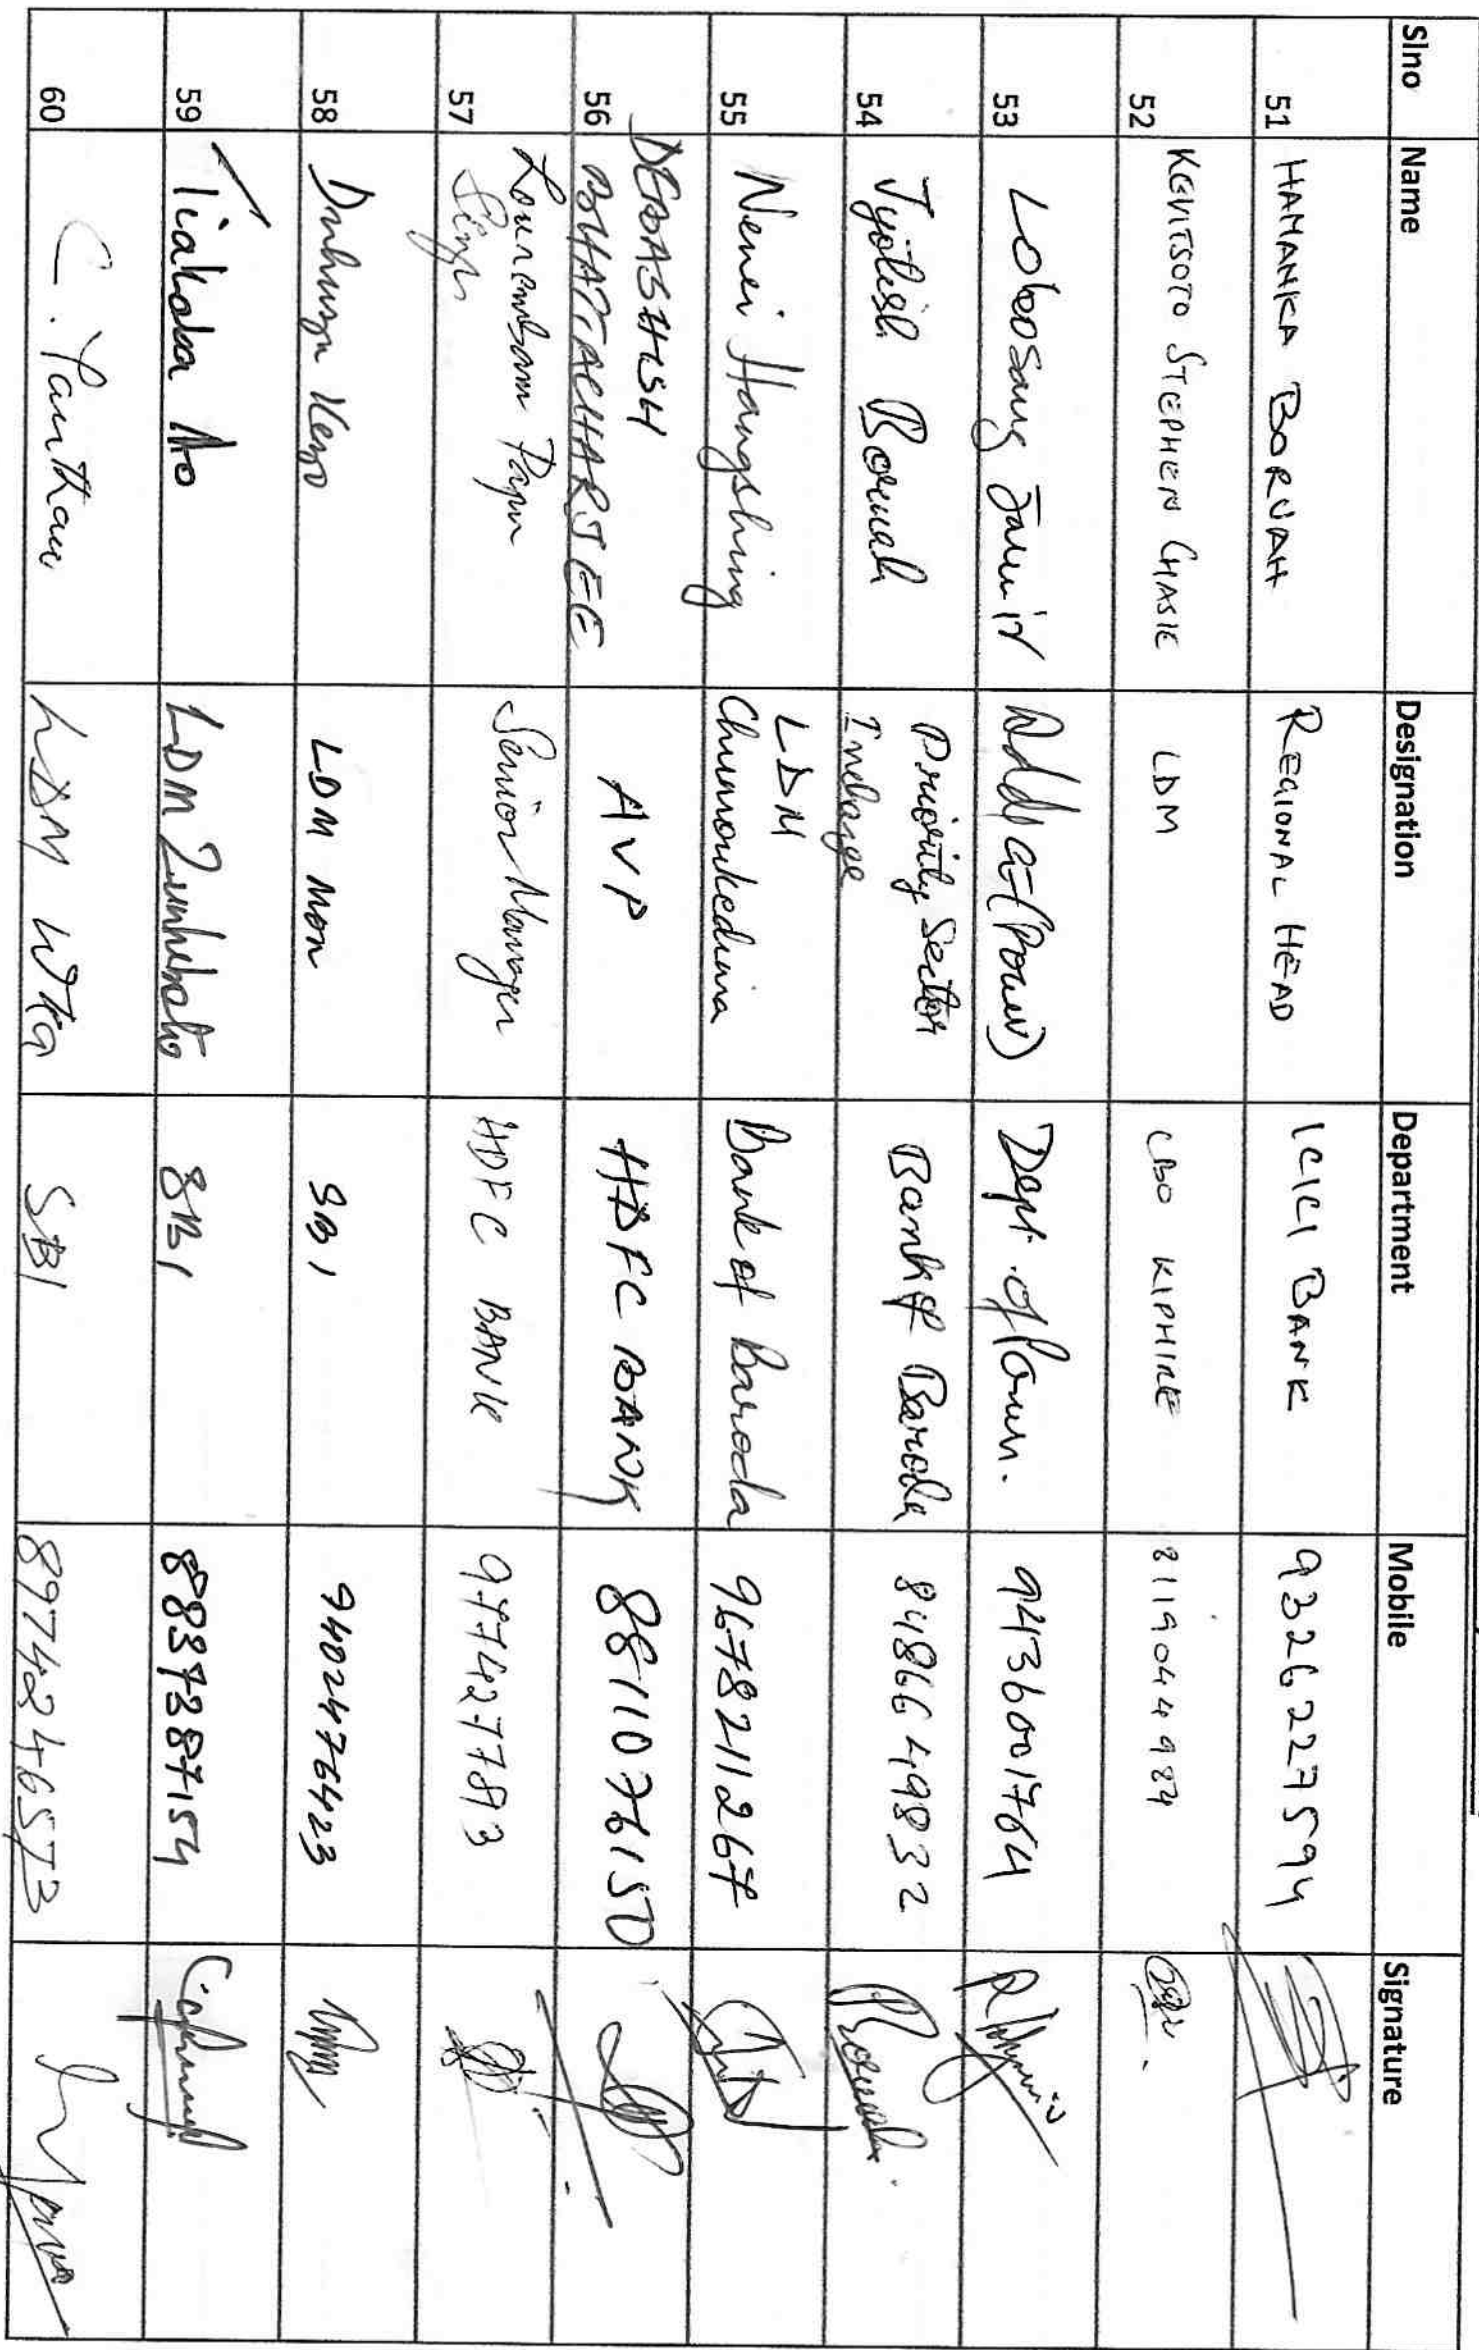 Slno Name Designation Department Mobile Signature
51 HAMANKA BORUAH REGIONAL HEAD ICICI BANK 9326227594
52 KEVITSOTO STEPHEN CHASIE LDM LBO KIPHIRE 8119044984
53 Lobosang Jamir Addl (Power) Dept. of Power. 9436001764
54 Jyotish Boruah Priority Sector
Incharge Bank of Baroda 8486649832
55 Nemei Hangshing LDM
Chumoukedima Bank of Baroda 9678211267
56 DEBASHISH
BHATTACHARJEE AVP HDFC BANK 8811076150
57 Lourembam Papu
Singh Senior Manager HDFC BANK
58 Kenso LDM Mon SBI 9402476423
59 Tiakaba Ao LDM Zunheboto SBI 8837387154
60 C. Yanthan LDM Wka SBI 8974246573